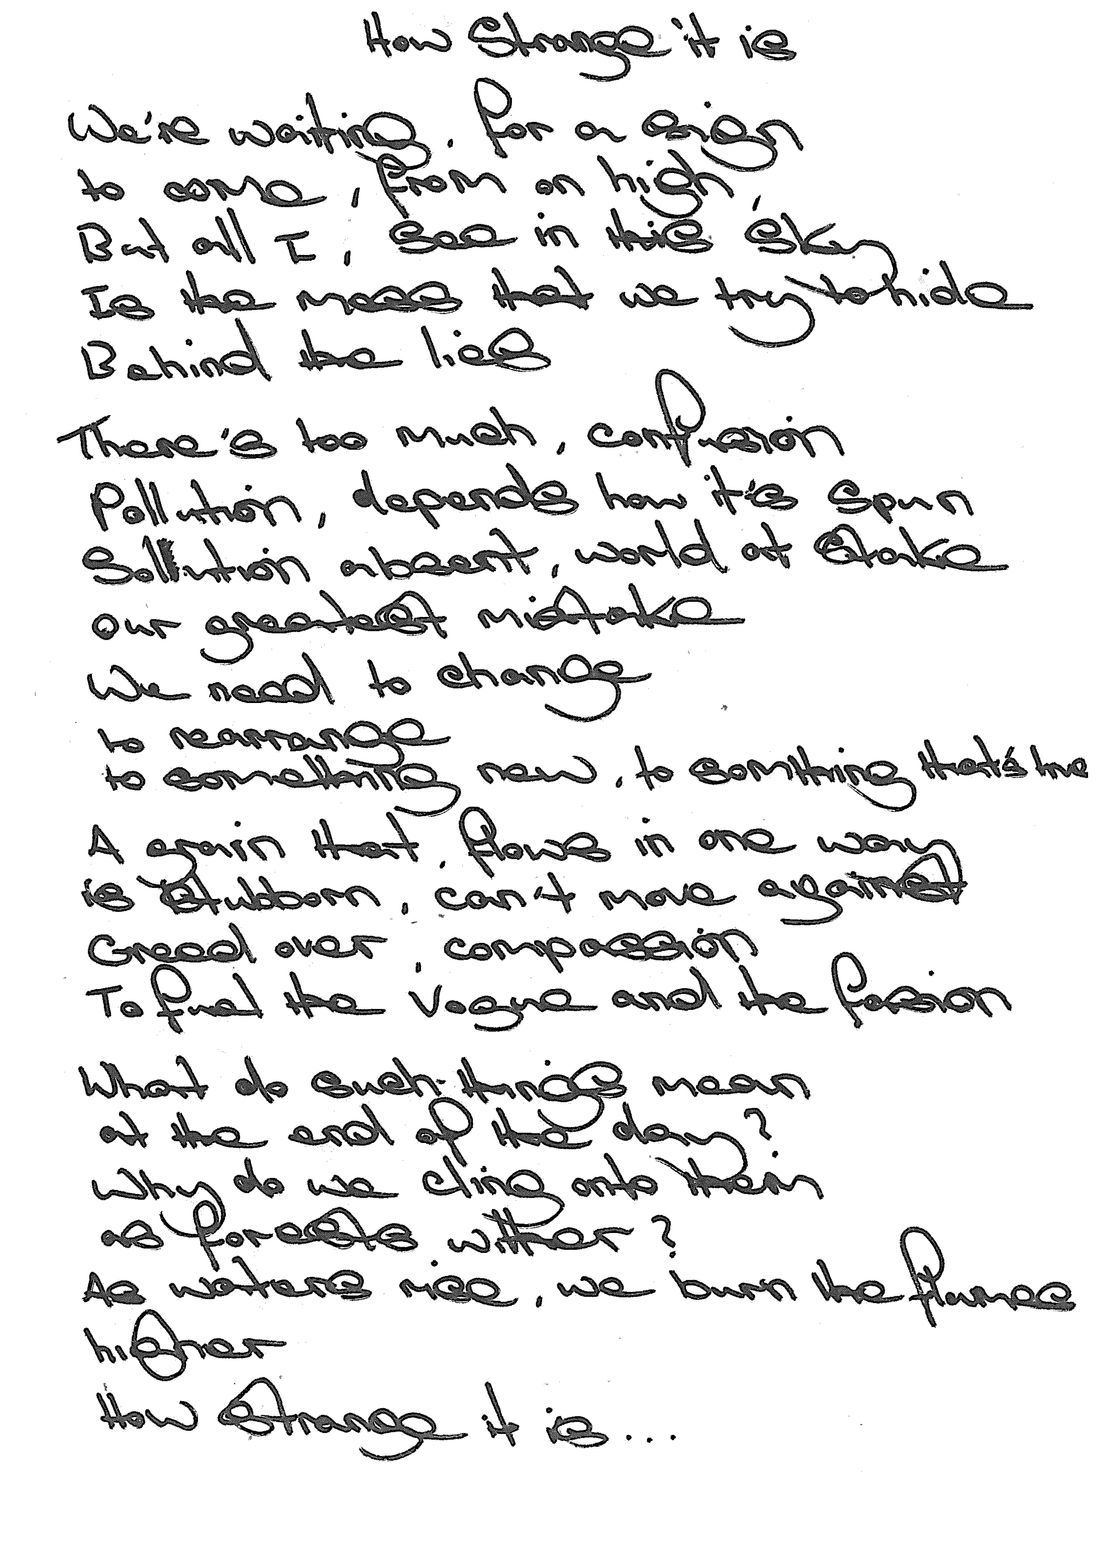 How Strange it is
We're waiting, for a sign
to come, from on high,
But all I, see in this sky
Is the mess that we try to hide
Behind the lies
There's too much, confusion
Pollution, depends how it's spun
Sollution absent, world at stake
our greatest mistake
We need to change
to rearrange
to something new, to somthing that's true
A grain that, flows in one way
is stubborn, can't move against
Greed over, compassion
To fuel the Vogue and the fasion
What do such things mean
at the end of the day?
Why do we cling onto them
as forests wither?
As waters rise, we burn the flames
higher
How strange it is...